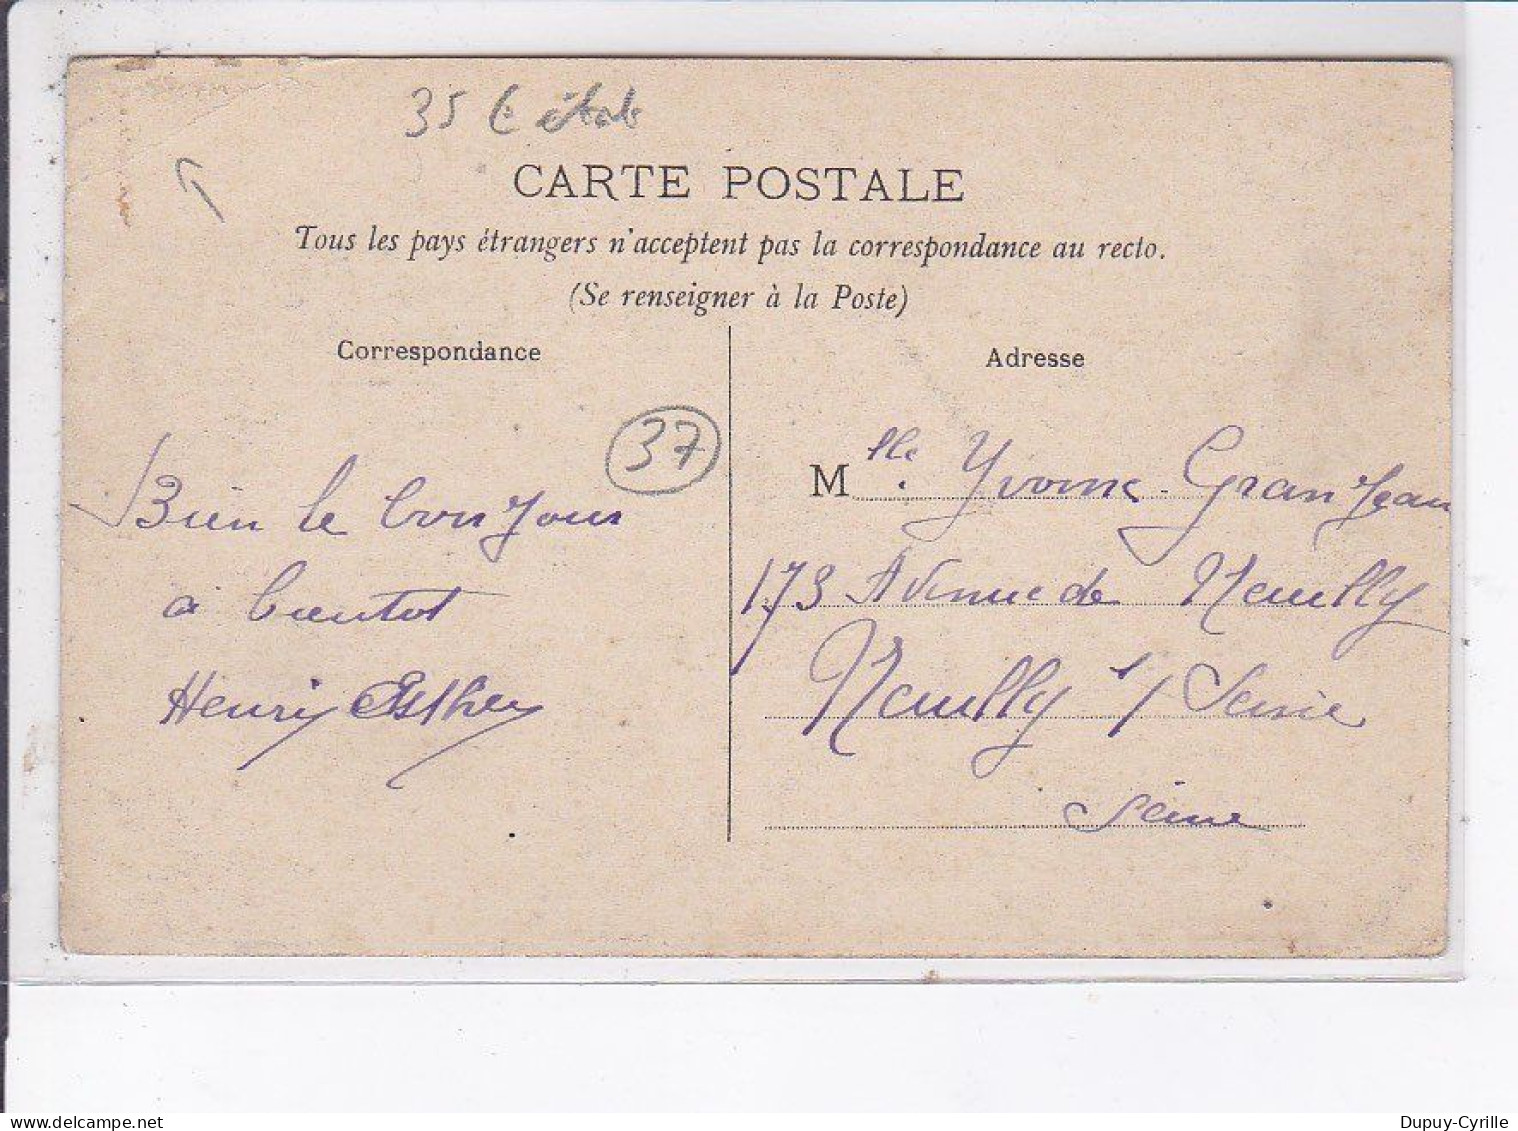 35 € état
CARTE POSTALE
Tous les pays étrangers n'acceptent pas la correspondance au recto.
(Se renseigner à la Poste)
Correspondance
37
Bien le bonjour
a bientot
Henri Esther
Adresse
Mlle. Yvonne Granjean
173 Avenue de Neuilly
Neuilly s/ Seine
Seine
delcampe.net
Dupuy-Cyrille